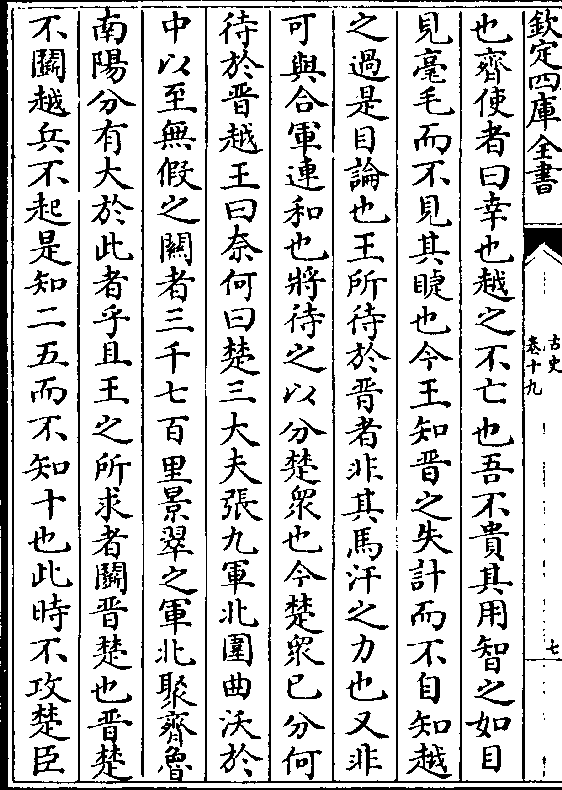 欽定四庫全書
古史
卷十九
七
也齊使者曰幸也越之不亡也吾不貴其用智之如目
見毫毛而不見其睫也今王知晋之失計而不自知越
之過是目論也王所待於晋者非其馬汗之力也又非
可與合軍連和也將待之以分楚衆也今楚衆已分何
待於晋越王曰奈何曰楚三大夫張九軍北圍曲沃於
中以至無假之關者三千七百里景翠之軍北聚齊魯
南陽分有大於此者乎且王之所求者鬭晋楚也晋楚
不鬭越兵不起是知二五而不知十也此時不攻楚臣